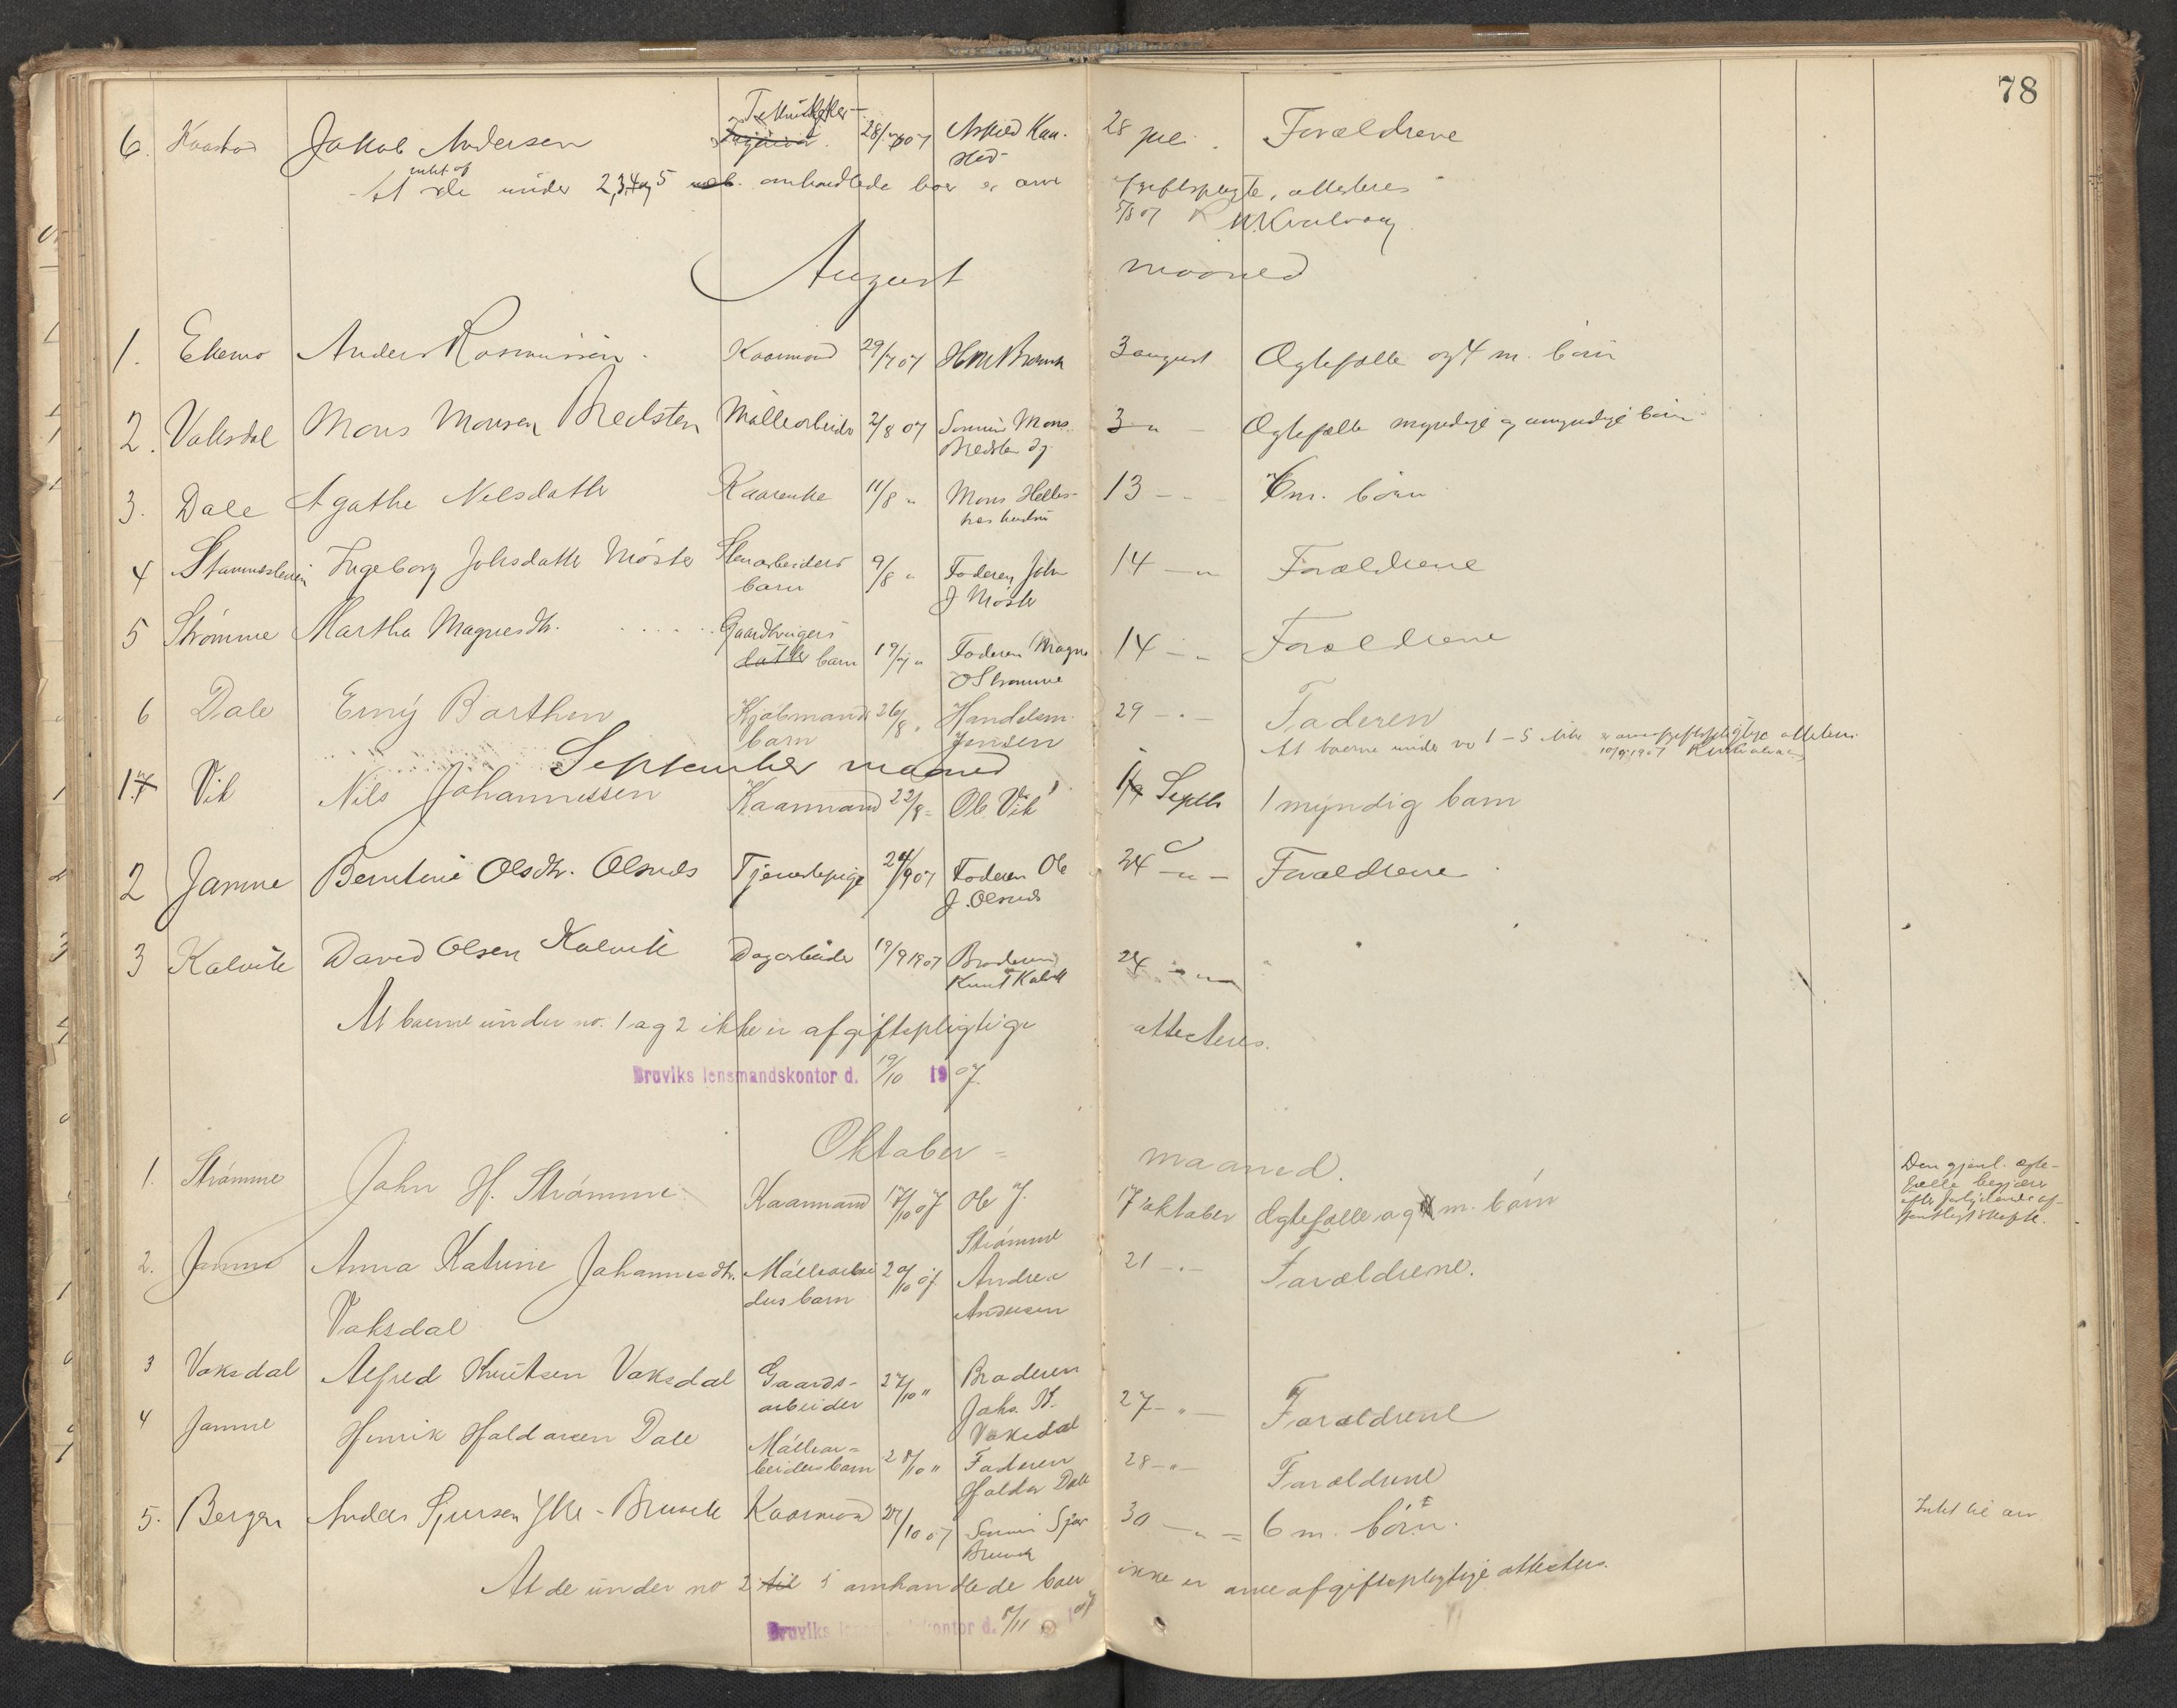 78
6. Kaastad Jakob Andersen 28/7 07 Askild Kaa- 28 juli. Forældrene
stad
intet af
At de under 2, 3, 4 og 5 omhandlede boer er arve afgiftspligte, attesteres
5/8 07
August maaned
1. Ekemo Anders Rasmussen Kaarmand 29/7 07 3 august Ægtefælle og 4 m. børn
2. Vaksdal Mons Monsen Bredsten Møllearbeider 2/8 07 Sønnen Mons 3 " - Ægtefælle myndige og umyndige børn
Bredsten
3. Dale Agathe Nilsdatter Kaarenke 11/8 " Mons Helles- 13 - " - 6 m. børn
4 Stamneshein Ingeborg Johsdatter Möster Stenarbeiders 9/8 " Faderen John 14 - " Forældrene
barn J Möster
5 Strømme Martha Magnesdtr. Gaardbrugers 19/7 " Faderen Magne 14 - " Forældrene
datter barn O Strømme
6 Dale Erny Barthen Kjøbmands 26/8 " Handelsm. 29 - " - Faderen
barn Jensen
At boerne under no 1 - 5 ikke er arveafgiftspligtige attesteres
10/9 1907
September maaned
1. Vik Nils Johannessen Kaarmand 22/8 - Ole Vik 1/9 Septb 1 myndig barn
2 Jamne Berntine Olsdtr. Olsnes Tjenestepige 24/9 07 Faderen Ole 24 - " - Forældrene
J. Olsnes
3 Kalvik David Olsen Kalvik Dagarbeider 19/9 1907 Broderen 24 - " -
Knut Kalvik
At boerne under no. 1 og 2 ikke er afgiftspligtige attesteres.
Bruviks lensmandskontor d. 19/10 1907.
Oktober = maaned.
1. Strømme John H. Strømme Kaarmand 17/10 07 Ole J. 17 oktober Ægtefælle og m. børn
Strømme
Den gjenl. ægte-
fælle begjærer
2. Jamne Anna Katrine Johannesdtr. Møllearbei 20/10 07 Andreas 21 - " - Forældrene.
Vaksdal ders barn Andersen
3 Vaksdal Alfred Knutsen Vaksdal Gaards- 27/10 " Broderen 27 - " - Forældrene
arbeider Johs. K.
Vaksdal
4 Jamne Henrik Haldorsen Dale Møllear= 28/10 " Faderen 28 - " - Forældrene
beiders barn Haldor Dale
5. Bergen Anders Sjursen Ytre-Bruvik Kaarmand 27/10 07 Sønnen Sjur 30 - " = 6 m. børn.
Bruvik
Intet til arv
At de under no 2 til 5 omhandlede boer ikke er arveafgiftspligtige attesteres.
Bruviks lensmandskontor d. 5/11 1907